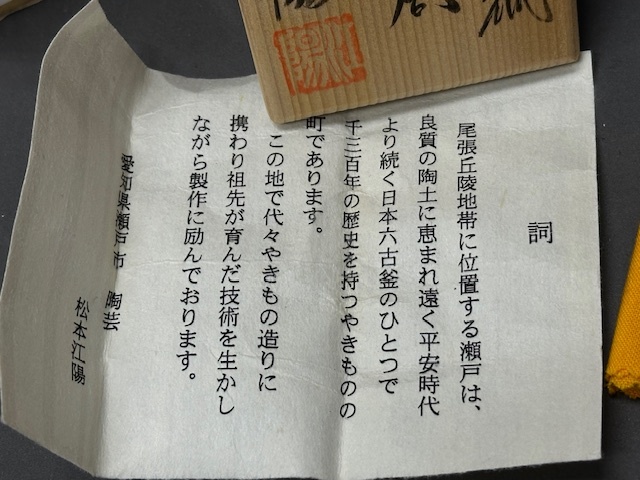 詞
尾張丘陵地帯に位置する瀬戸は、
良質の陶土に恵まれ遠く平安時代
より続く日本六古釜のひとつで
千三百年の歴史を持つやきものの
町であります。
この地で代々やきもの造りに
携わり祖先が育んだ技術を生かし
ながら製作に励んでおります。
愛知県瀬戸市 陶芸
松本江陽